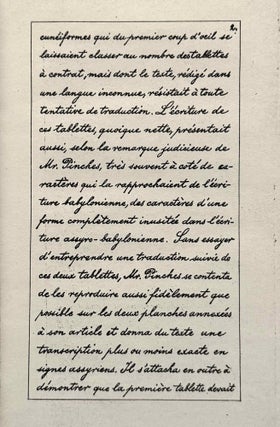 2.
cunéiformes qui du premier coup d'oeil se
laissaient classer au nombre des tablettes
à contrat, mais dont le texte, rédigé dans
une langue inconnue, résistait à toute
tentative de traduction. L'écriture de
ces tablettes, quoique nette, présentait
aussi, selon la remarque judicieuse de
Mr. Pinches, très souvent à coté de ca-
ractères qui la rapprochaient de l'écri-
ture babylonienne, des caractères d'une
forme complètement inusités dans l'écri-
ture assyro-babylonienne. Sans essayer
d'entreprendre une traduction suivie de
ces deux tablettes, Mr. Pinches se contenta
de les reproduire aussi fidèlement que
possible sur les deux planches annexées
à son article et donna du texte une
transcription plus ou moins exacte en
signes assyriens. Il s'attacha en outre à
démontrer que la première tablette devait